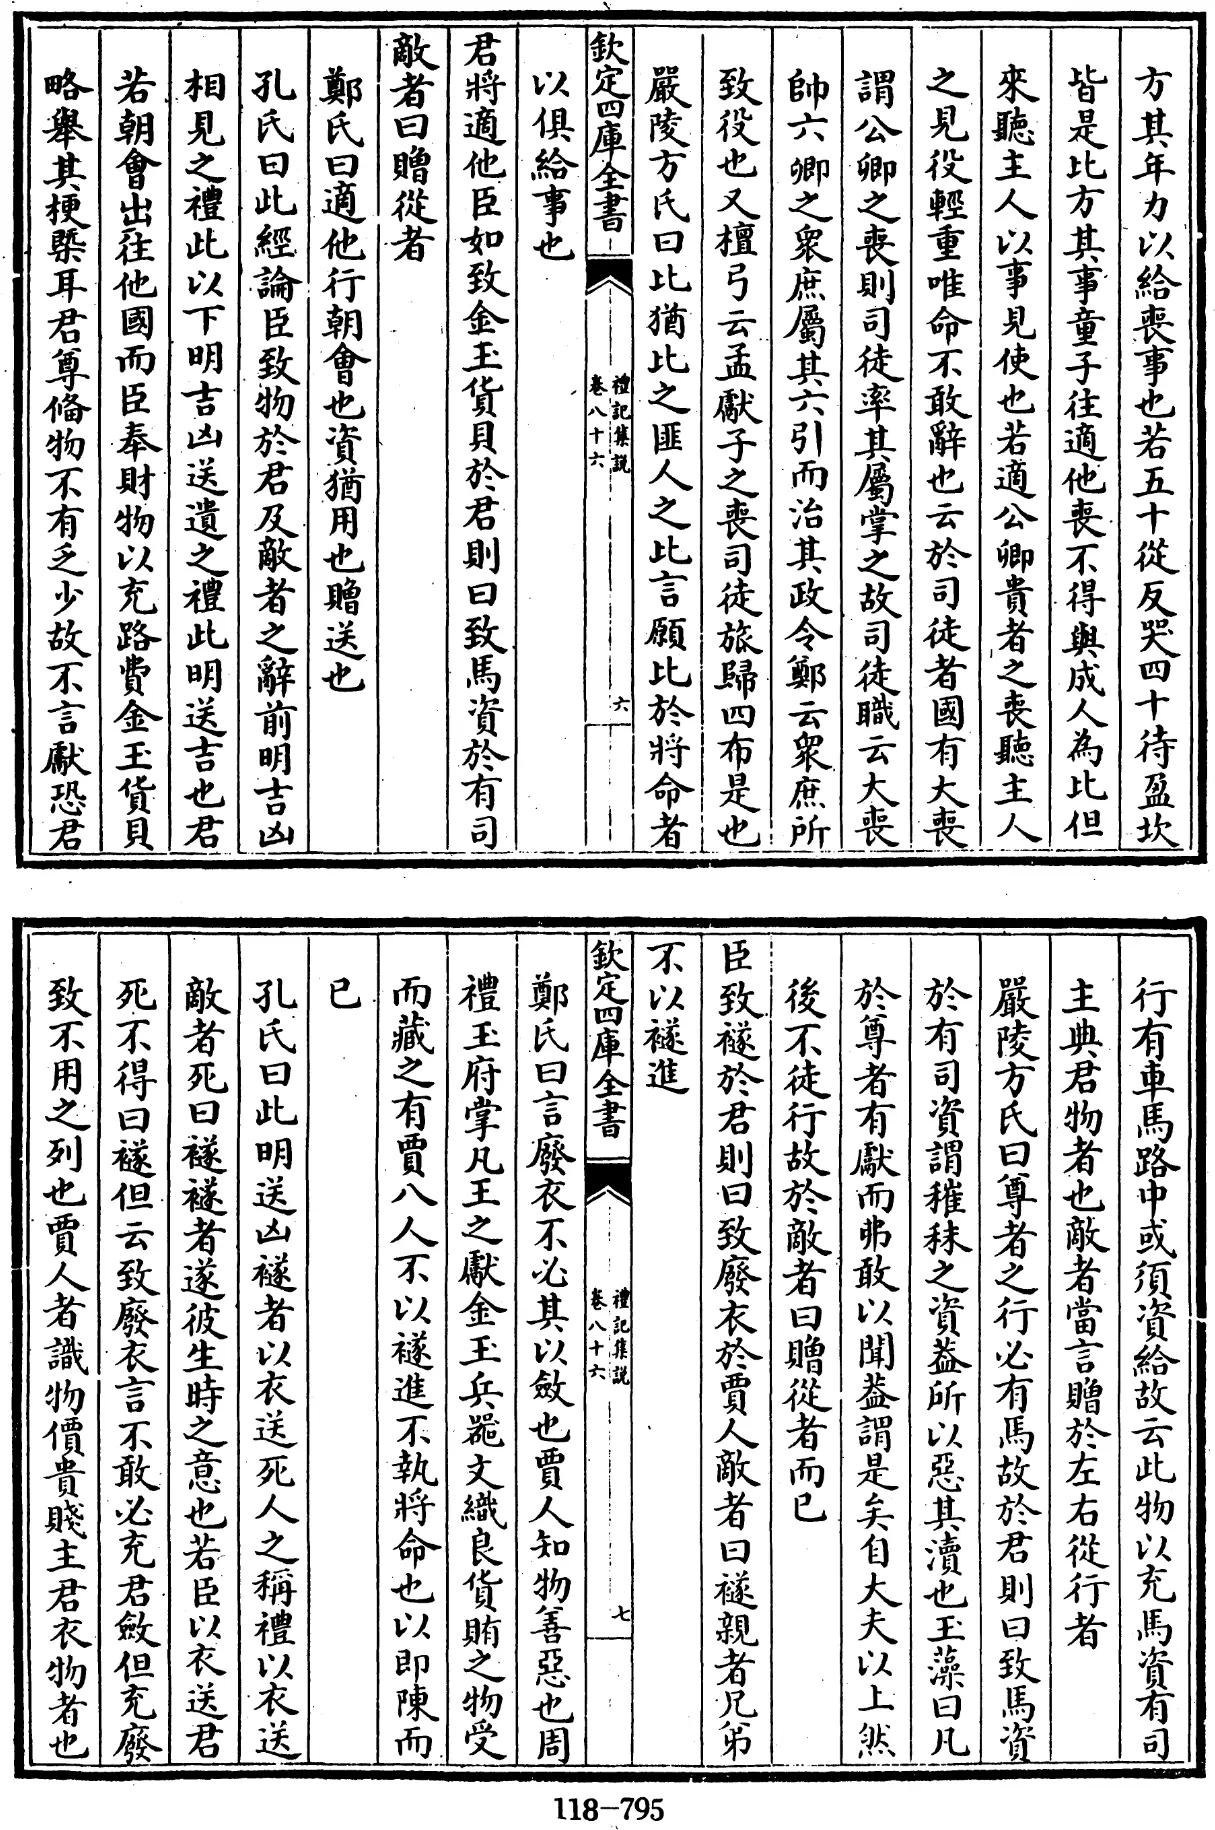 方其年力以給喪事也若五十從反哭四十待盈坎
皆是比方其事童子往適他喪不得與成人為比但
來聽主人以事見使也若適公卿貴者之喪聽主人
之見役輕重唯命不敢辭也云於司徒者國有大喪
謂公卿之喪則司徒率其屬掌之故司徒職云大喪
帥六卿之衆庶屬其六引而治其政令鄭云衆庶所
致役也又檀弓云孟獻子之喪司徒旅歸四布是也
嚴陵方氏曰比猶比之匪人之比言願比於將命者
欽定四庫全書
禮記集說
卷八十六
六
以俱給事也
君將適他臣如致金玉貨貝於君則曰致馬資於有司
敵者曰贈從者
鄭氏曰適他行朝會也資猶用也贈送也
孔氏曰此經論臣致物於君及敵者之辭前明吉凶
相見之禮此以下明吉凶送遺之禮此明送吉也君
若朝會出往他國而臣奉財物以充路費金玉貨貝
略舉其梗槩耳君尊備物不有乏少故不言獻恐君
行有車馬路中或須資給故云此物以充馬資有司
主典君物者也敵者當言贈於左右從行者
嚴陵方氏曰尊者之行必有馬故於君則曰致馬資
於有司資謂𥠖秣之資葢所以惡其瀆也玉藻曰凡
於尊者有獻而弗敢以聞葢謂是矣自大夫以上然
後不徒行故於敵者曰贈從者而已
臣致襚於君則曰致廢衣於賈人敵者曰襚親者兄弟
不以襚進
欽定四庫全書
禮記集說
卷八十六
七
鄭氏曰言廢衣不必其以斂也賈人知物善惡也周
禮玉府掌凡王之獻金玉兵器文織良貨賄之物受
而藏之有賈八人不以襚進不執將命也以即陳而
已
孔氏曰此明送凶襚者以衣送死人之稱禮以衣送
敵者死曰襚襚者遂彼生時之意也若臣以衣送君
死不得曰襚但云致廢衣言不敢必充君斂但充廢
致不用之列也賈人者識物價貴賤主君衣物者也
118-795